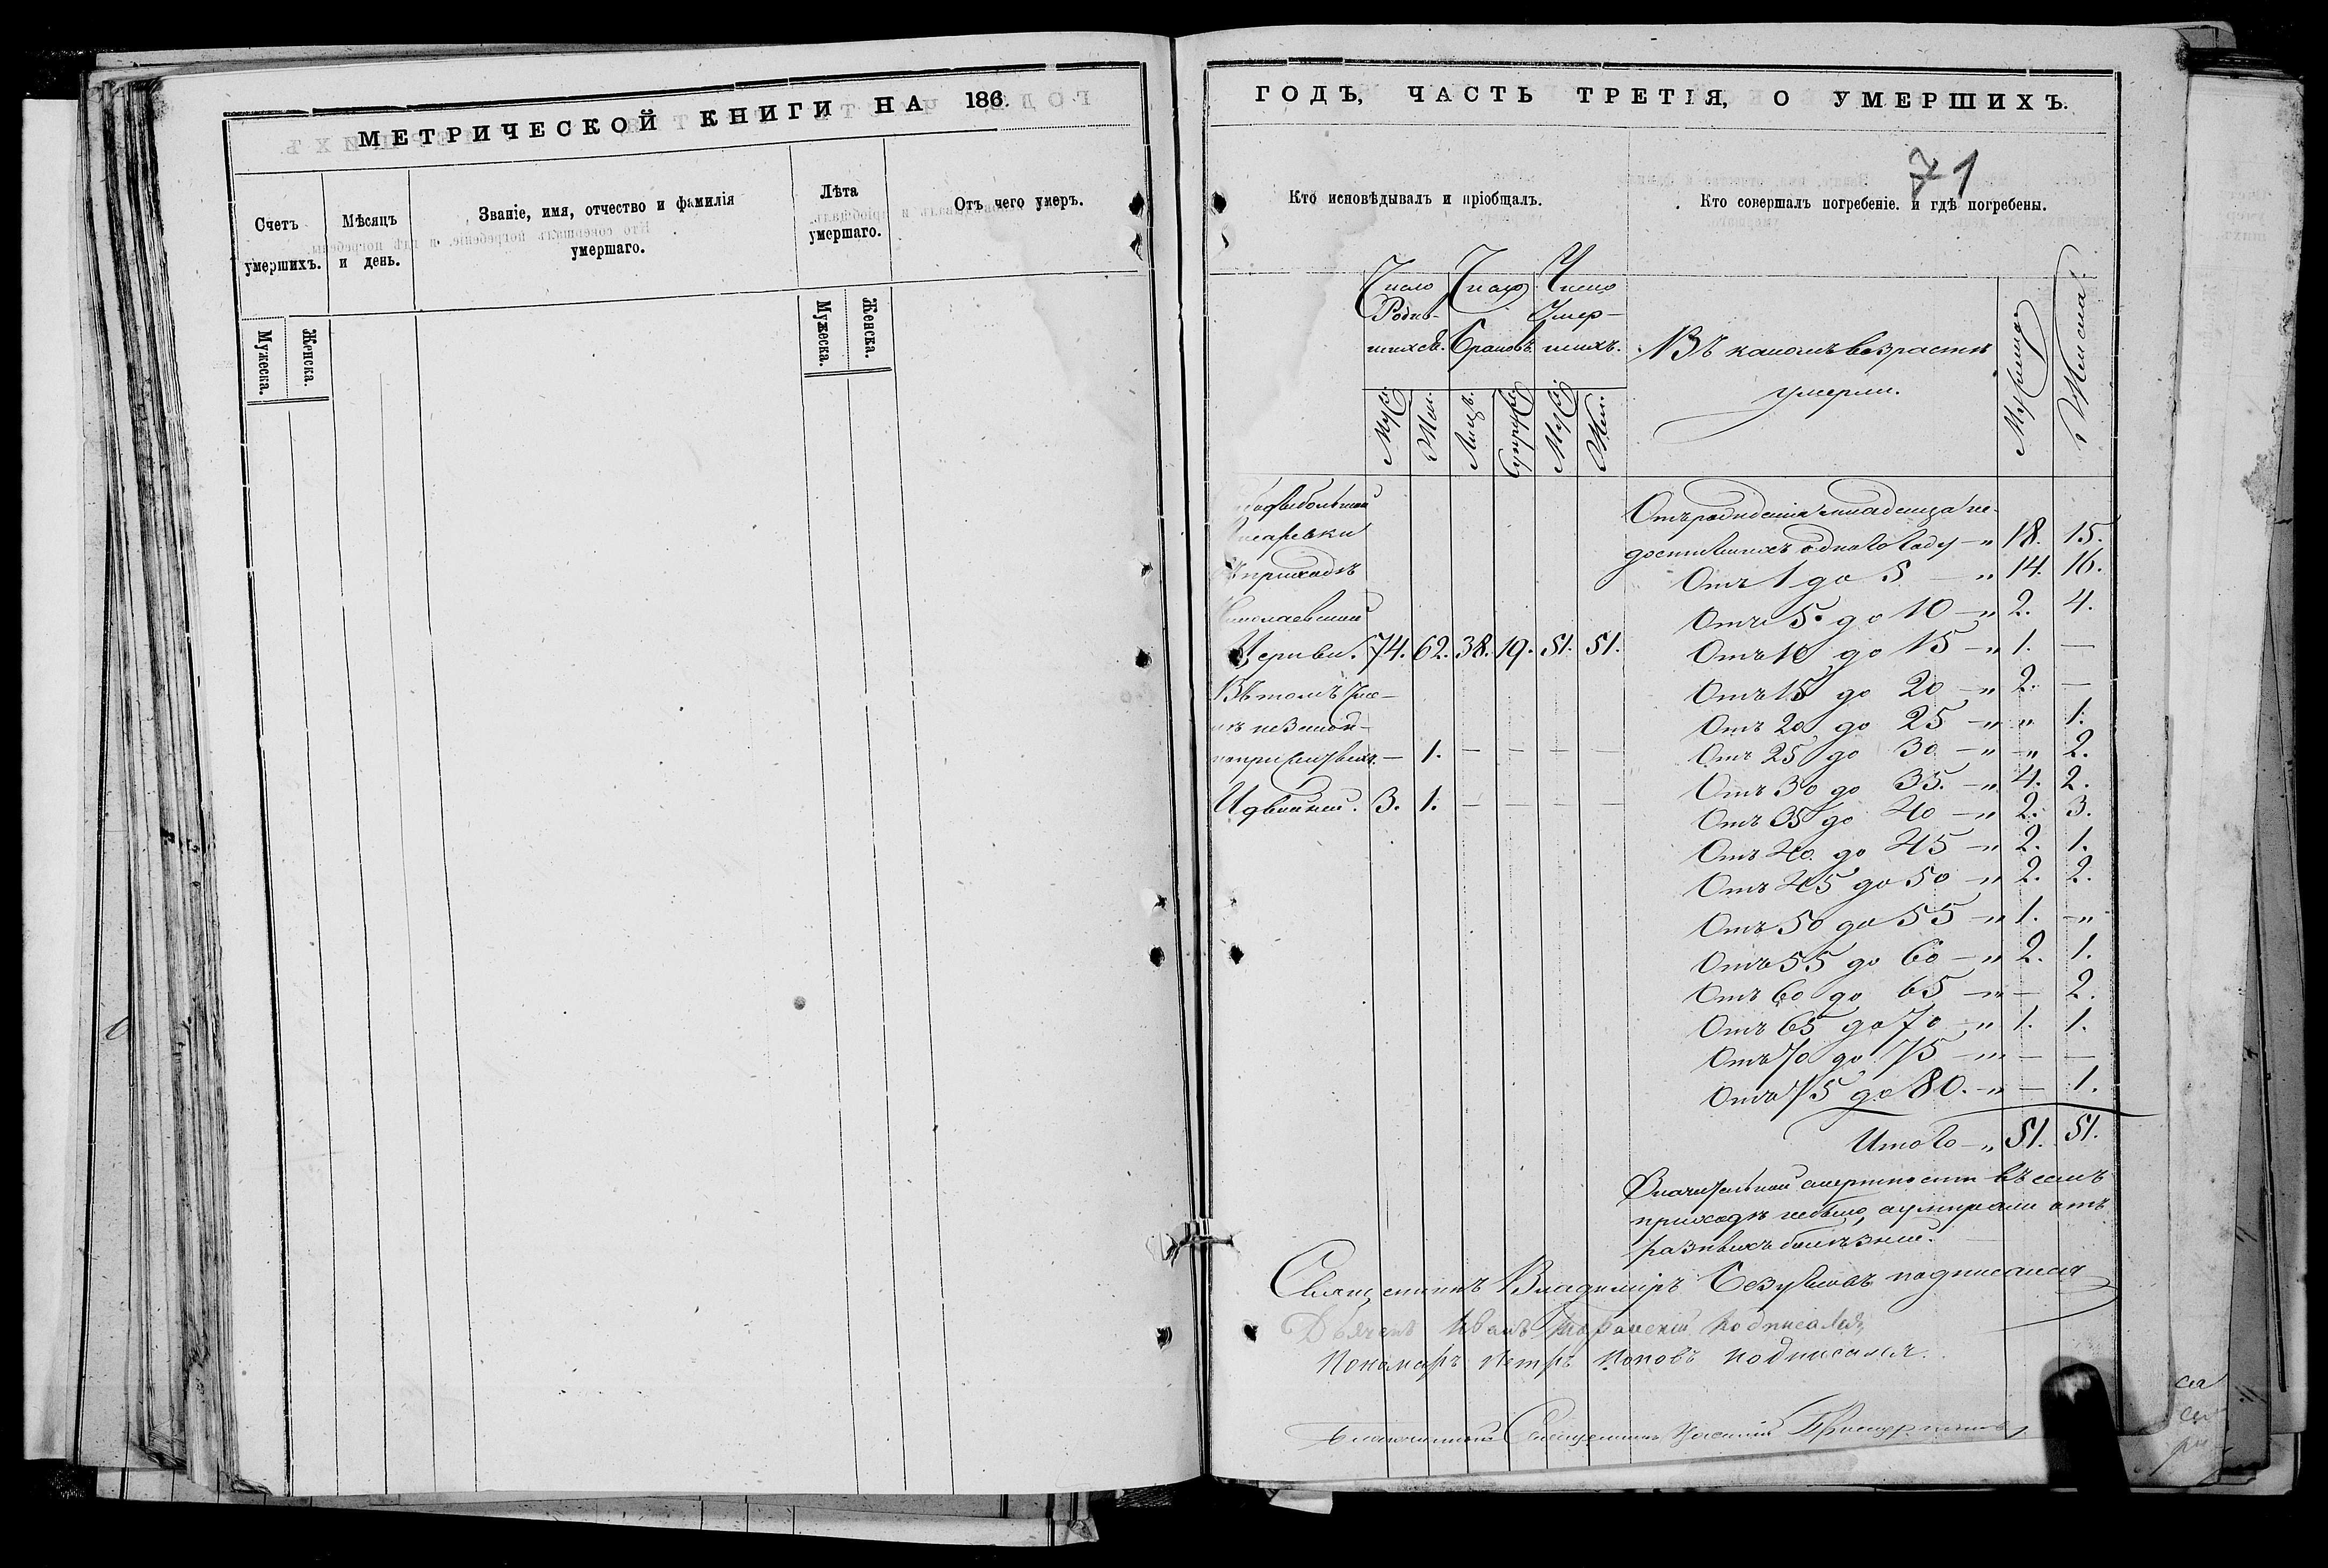 МЕТРИЧЕСКОЙ КНИГИ НА 186
Счетъ умершихъ.
Мѣсяцъ и день.
Званіе, имя, отчество и фамилія умершаго.
Лѣта умершаго.
Отъ чего умеръ.
Мужеска.
Женска.
Мужеска.
Женска.
ГОДЪ, ЧАСТЬ ТРЕТІЯ, О УМЕРШИХЪ.
71
Кто исповѣдывалъ и пріобщалъ.
Кто совершалъ погребеніе. и гдѣ погребены.
Число Родив-шихся.
Число Браковъ.
Число Умер-шихъ.
Муж. Жен. Лицъ. Супруж. Муж. Жен.
Въ какомъ возрастѣ
умерли.
Мужска
Женска
Писаревки
приходѣ
Николаевской
Церкви. 74. 62. 38. 19. 51. 51.
Въ томъ чис-
— 1. — — — —
И двойни. 3. 1. — — — —
Отъ рожденія младенца не-
достигшихъ одного году — „ 18. 15.
Отъ 1 до 5 — „ 14. 16.
Отъ 5 до 10 — „ 2. 4.
Отъ 10 до 15 — „ 1. —
Отъ 15 до 20 — „ 2. —
Отъ 20 до 25 — „ „ 1.
Отъ 25 до 30 — „ — „ 2.
Отъ 30 до 35. — „ 4. 2.
Отъ 35 до 40 — „ 2. 3.
Отъ 40 до 45 — „ 2. 1.
Отъ 45 до 50 — „ 2. 2.
Отъ 50 до 55 — „ 1. — „
Отъ 55 до 60 — „ 2. 1.
Отъ 60 до 65 — „ — 2.
Отъ 65 до 70 — „ 1. 1.
Отъ 70 до 75 — „ — —
Отъ 75 до 80. — „ — 1.
Итого — „ 51. 51.
Значительной смертности въ семъ
приходѣ небыло, а умирали отъ
разныхъ болѣзней.
Священникъ Владиміръ подписался
Дьячекъ Иванъ подписался
Пономарь Петръ Поповъ подписался.
Благочинный Священникъ